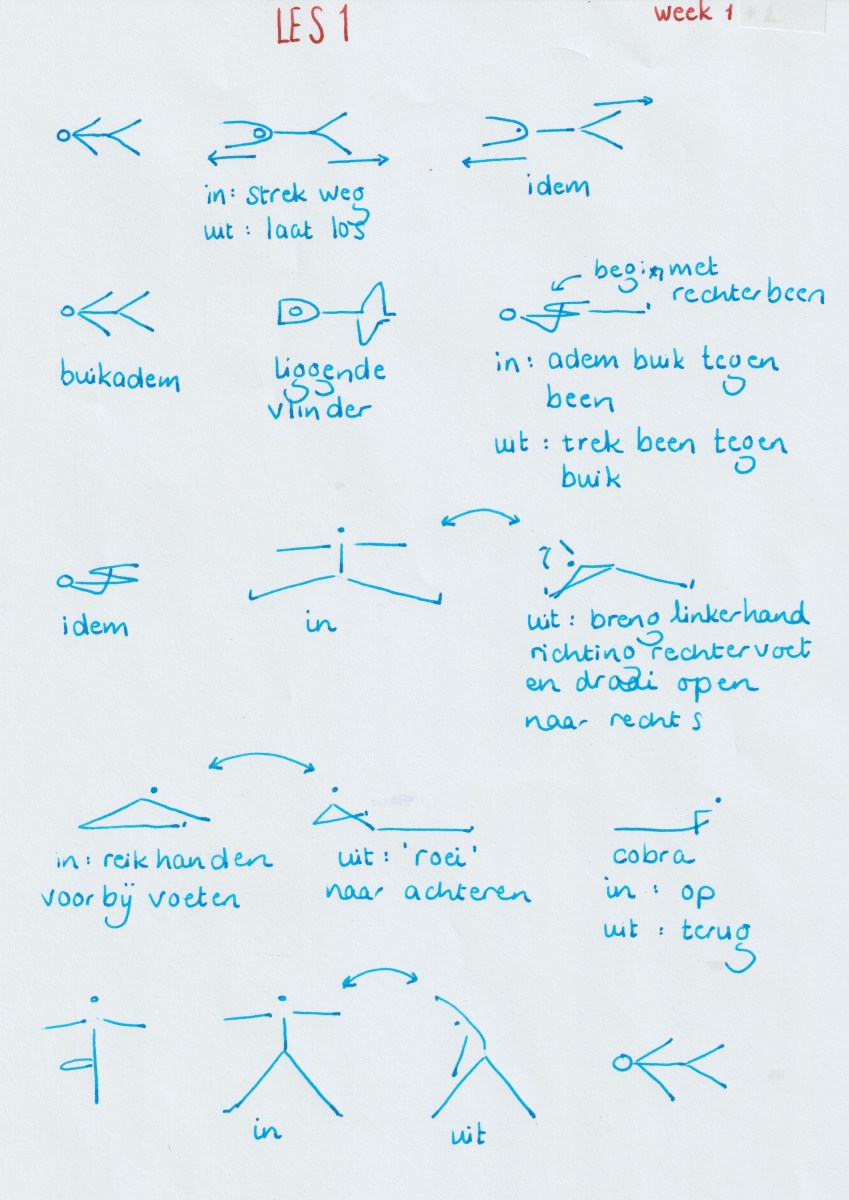 LES 1
week 1
in: strek weg
uit: laat los
idem
begin met
rechterbeen
buikadem
liggende
vlinder
in: adem buik tegen
been
uit: trek been tegen
buik
idem
in
uit: breng linkerhand
richting rechtervoet
en draai open
naar rechts
in: reik handen
voorbij voeten
uit: 'roei'
naar achteren
cobra
in: op
uit: terug
in
uit